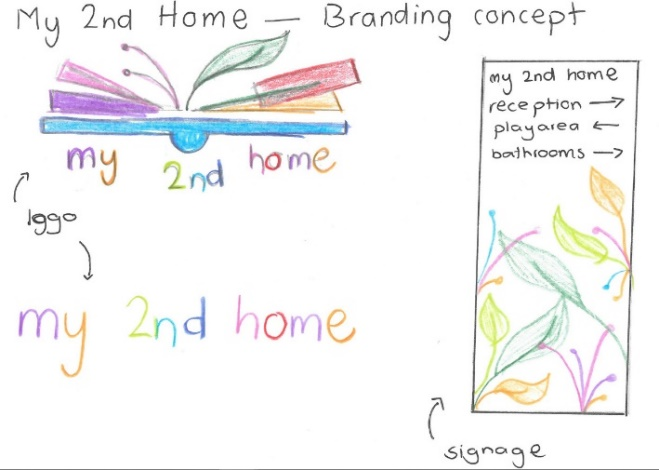 My 2nd Home — Branding concept
my 2nd home
logo
my 2nd home
my 2nd home
reception →
playarea ←
bathrooms →
signage